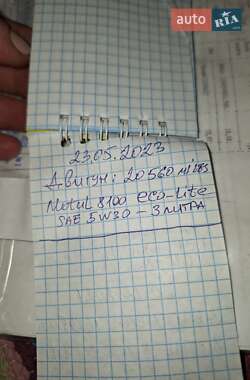 auto RIA
23.05.2023
Двигун: 20560 miles
Motul 8100 eco-lite
SAE 5W30 - 3 литра